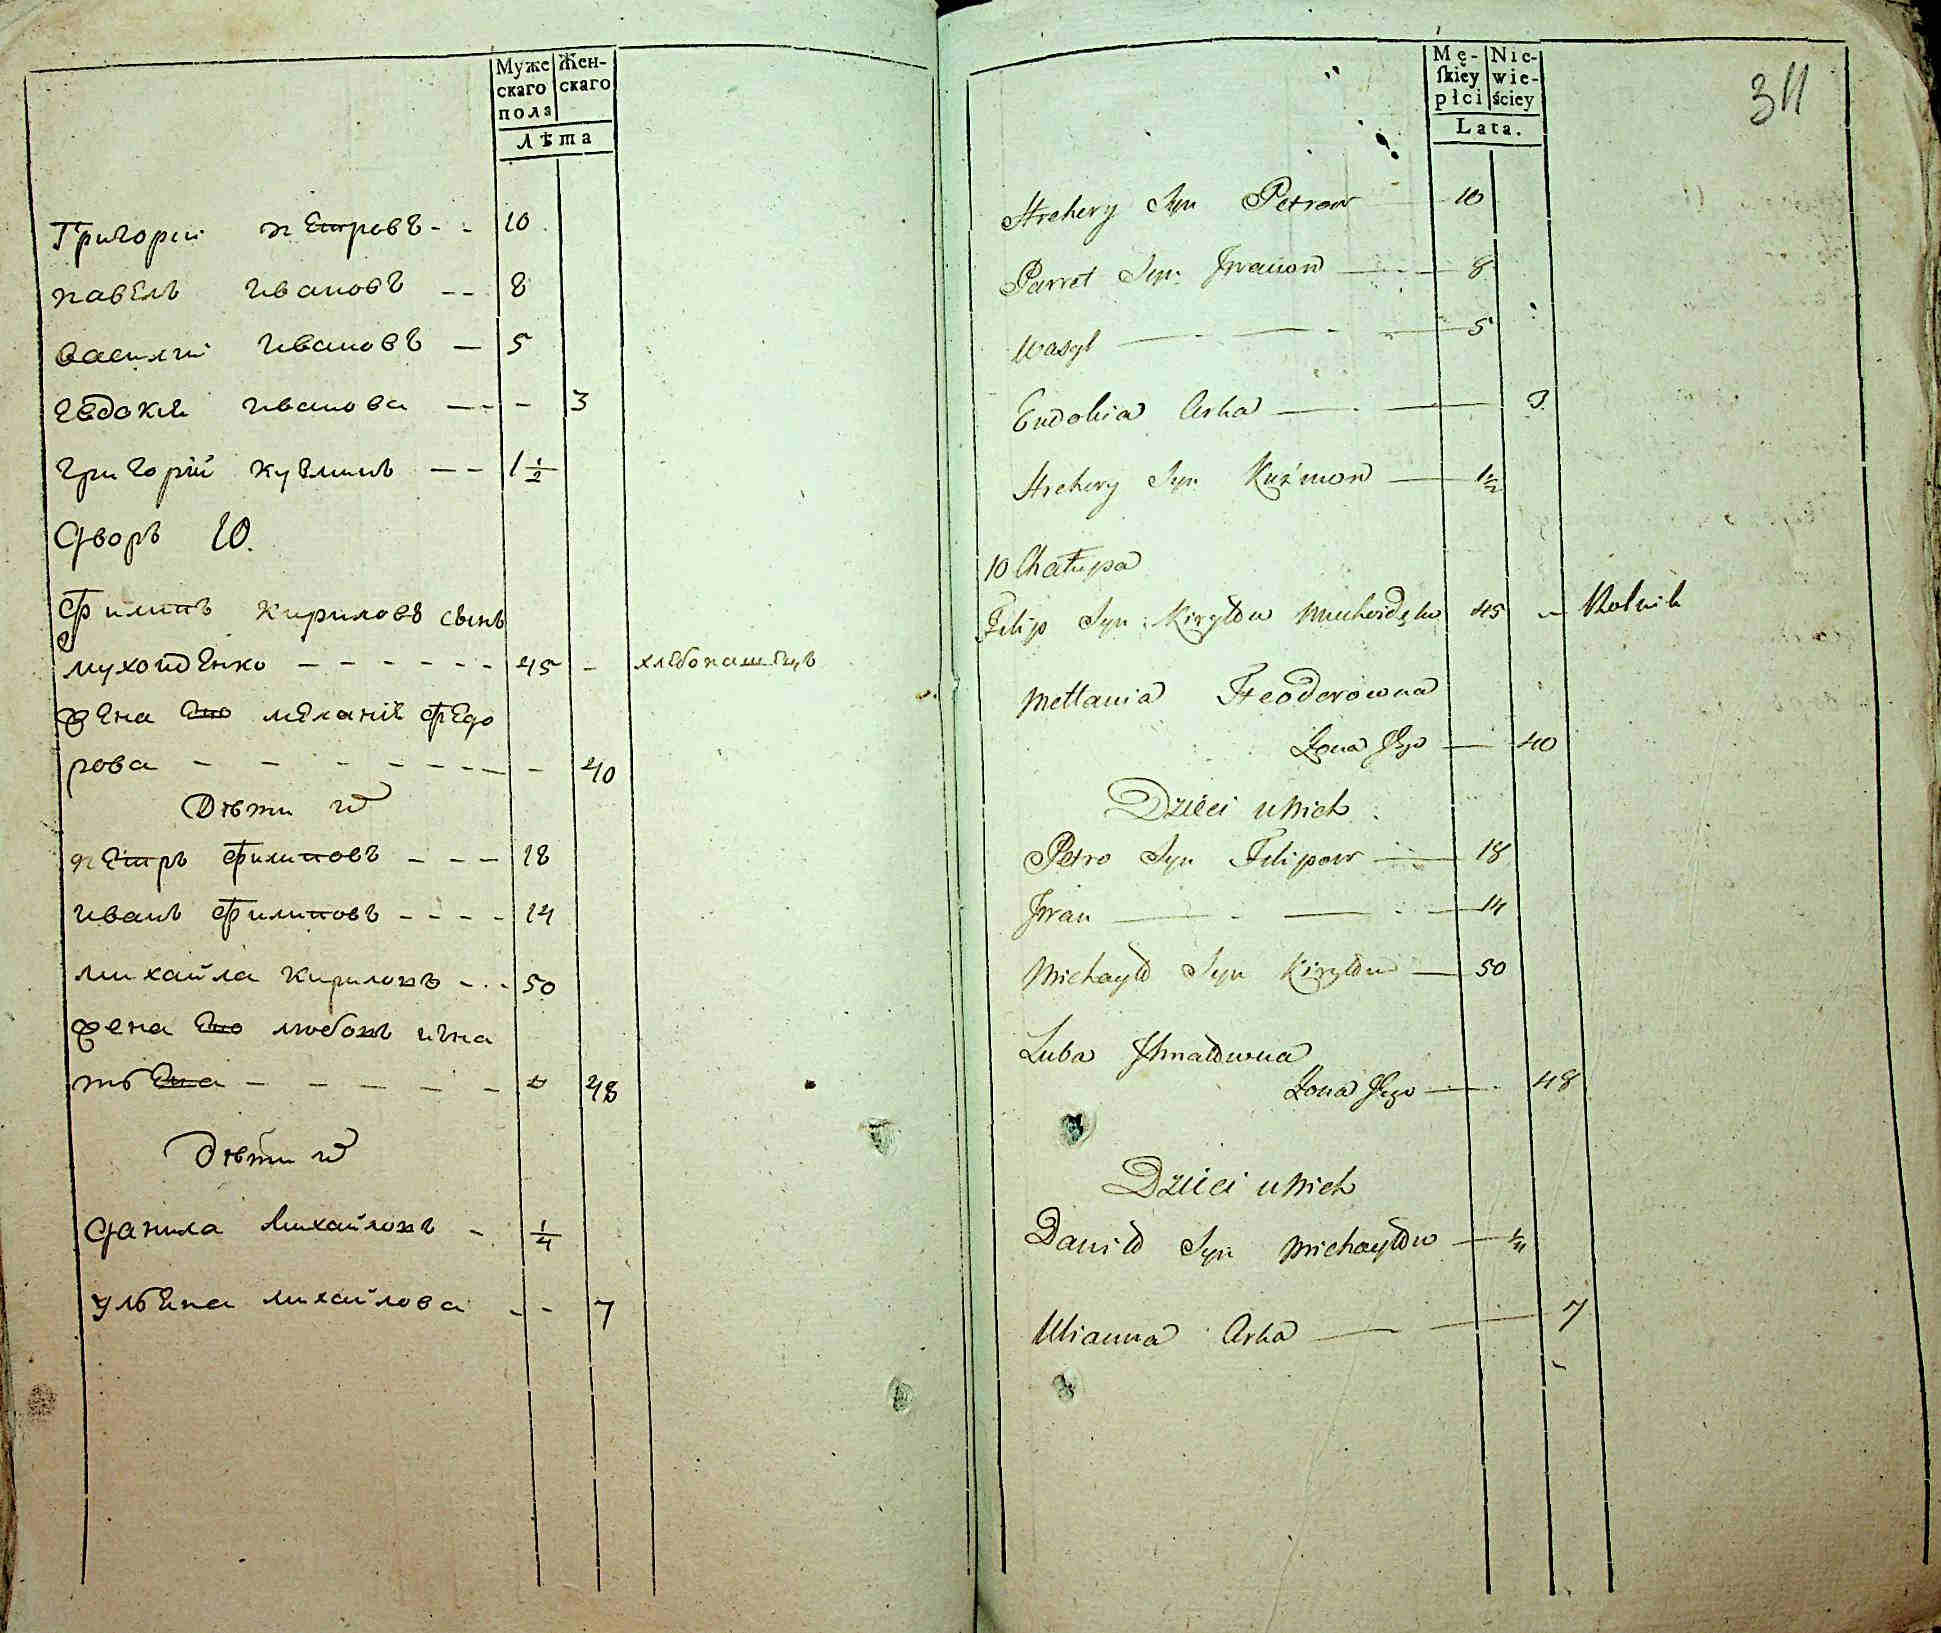 Муже
скаго
пола
Жен-
скаго
лѣта
Григорій петровъ - - 10
павелъ ивановъ - - 8
василій ивановъ - 5
Евдокия иванова - - - 3
григорій кузминъ - - 1 1/2
Дворъ 10.
Филипъ кириловъ сынъ
мухойдЕнко - - - - - - 45 - хлебопашецъ
жена Его меланія федо
рова - - - - - - - - 40
Дѣти их
петръ филиповъ - - - 18
иванъ филиповъ - - - - 14
михайла кириловъ - - - 50
жена Его любовъ игна
тьева - - - - - - 48
Дѣти их
Данила михайловъ - 1/4
ульяна михайлова - - 7
Mę-
skiey
płci
Nie-
wie-
ściey
Lata.
311
Hrehory Syn Petrow 10
Paweł Syn Iwanow 8
Wasyl 5
Eudokia Crka 3
Hrehory Syn Kuźmow 1 1/2
10 Chałupa
Filip Syn Kiryłow Muchoidęko 45 - Rolnik
Mełania Fteodorowna
Zona Jego 40
Dzieci u Nich
Petro Syn Filipow 18
Jwan 14
Michayło Syn Kiryłow 50
Luba Jhnatowna
Zona Jego 48
Dzieci u Nich
Daniło Syn Michayłow 1/4
Ulianna Crka 7